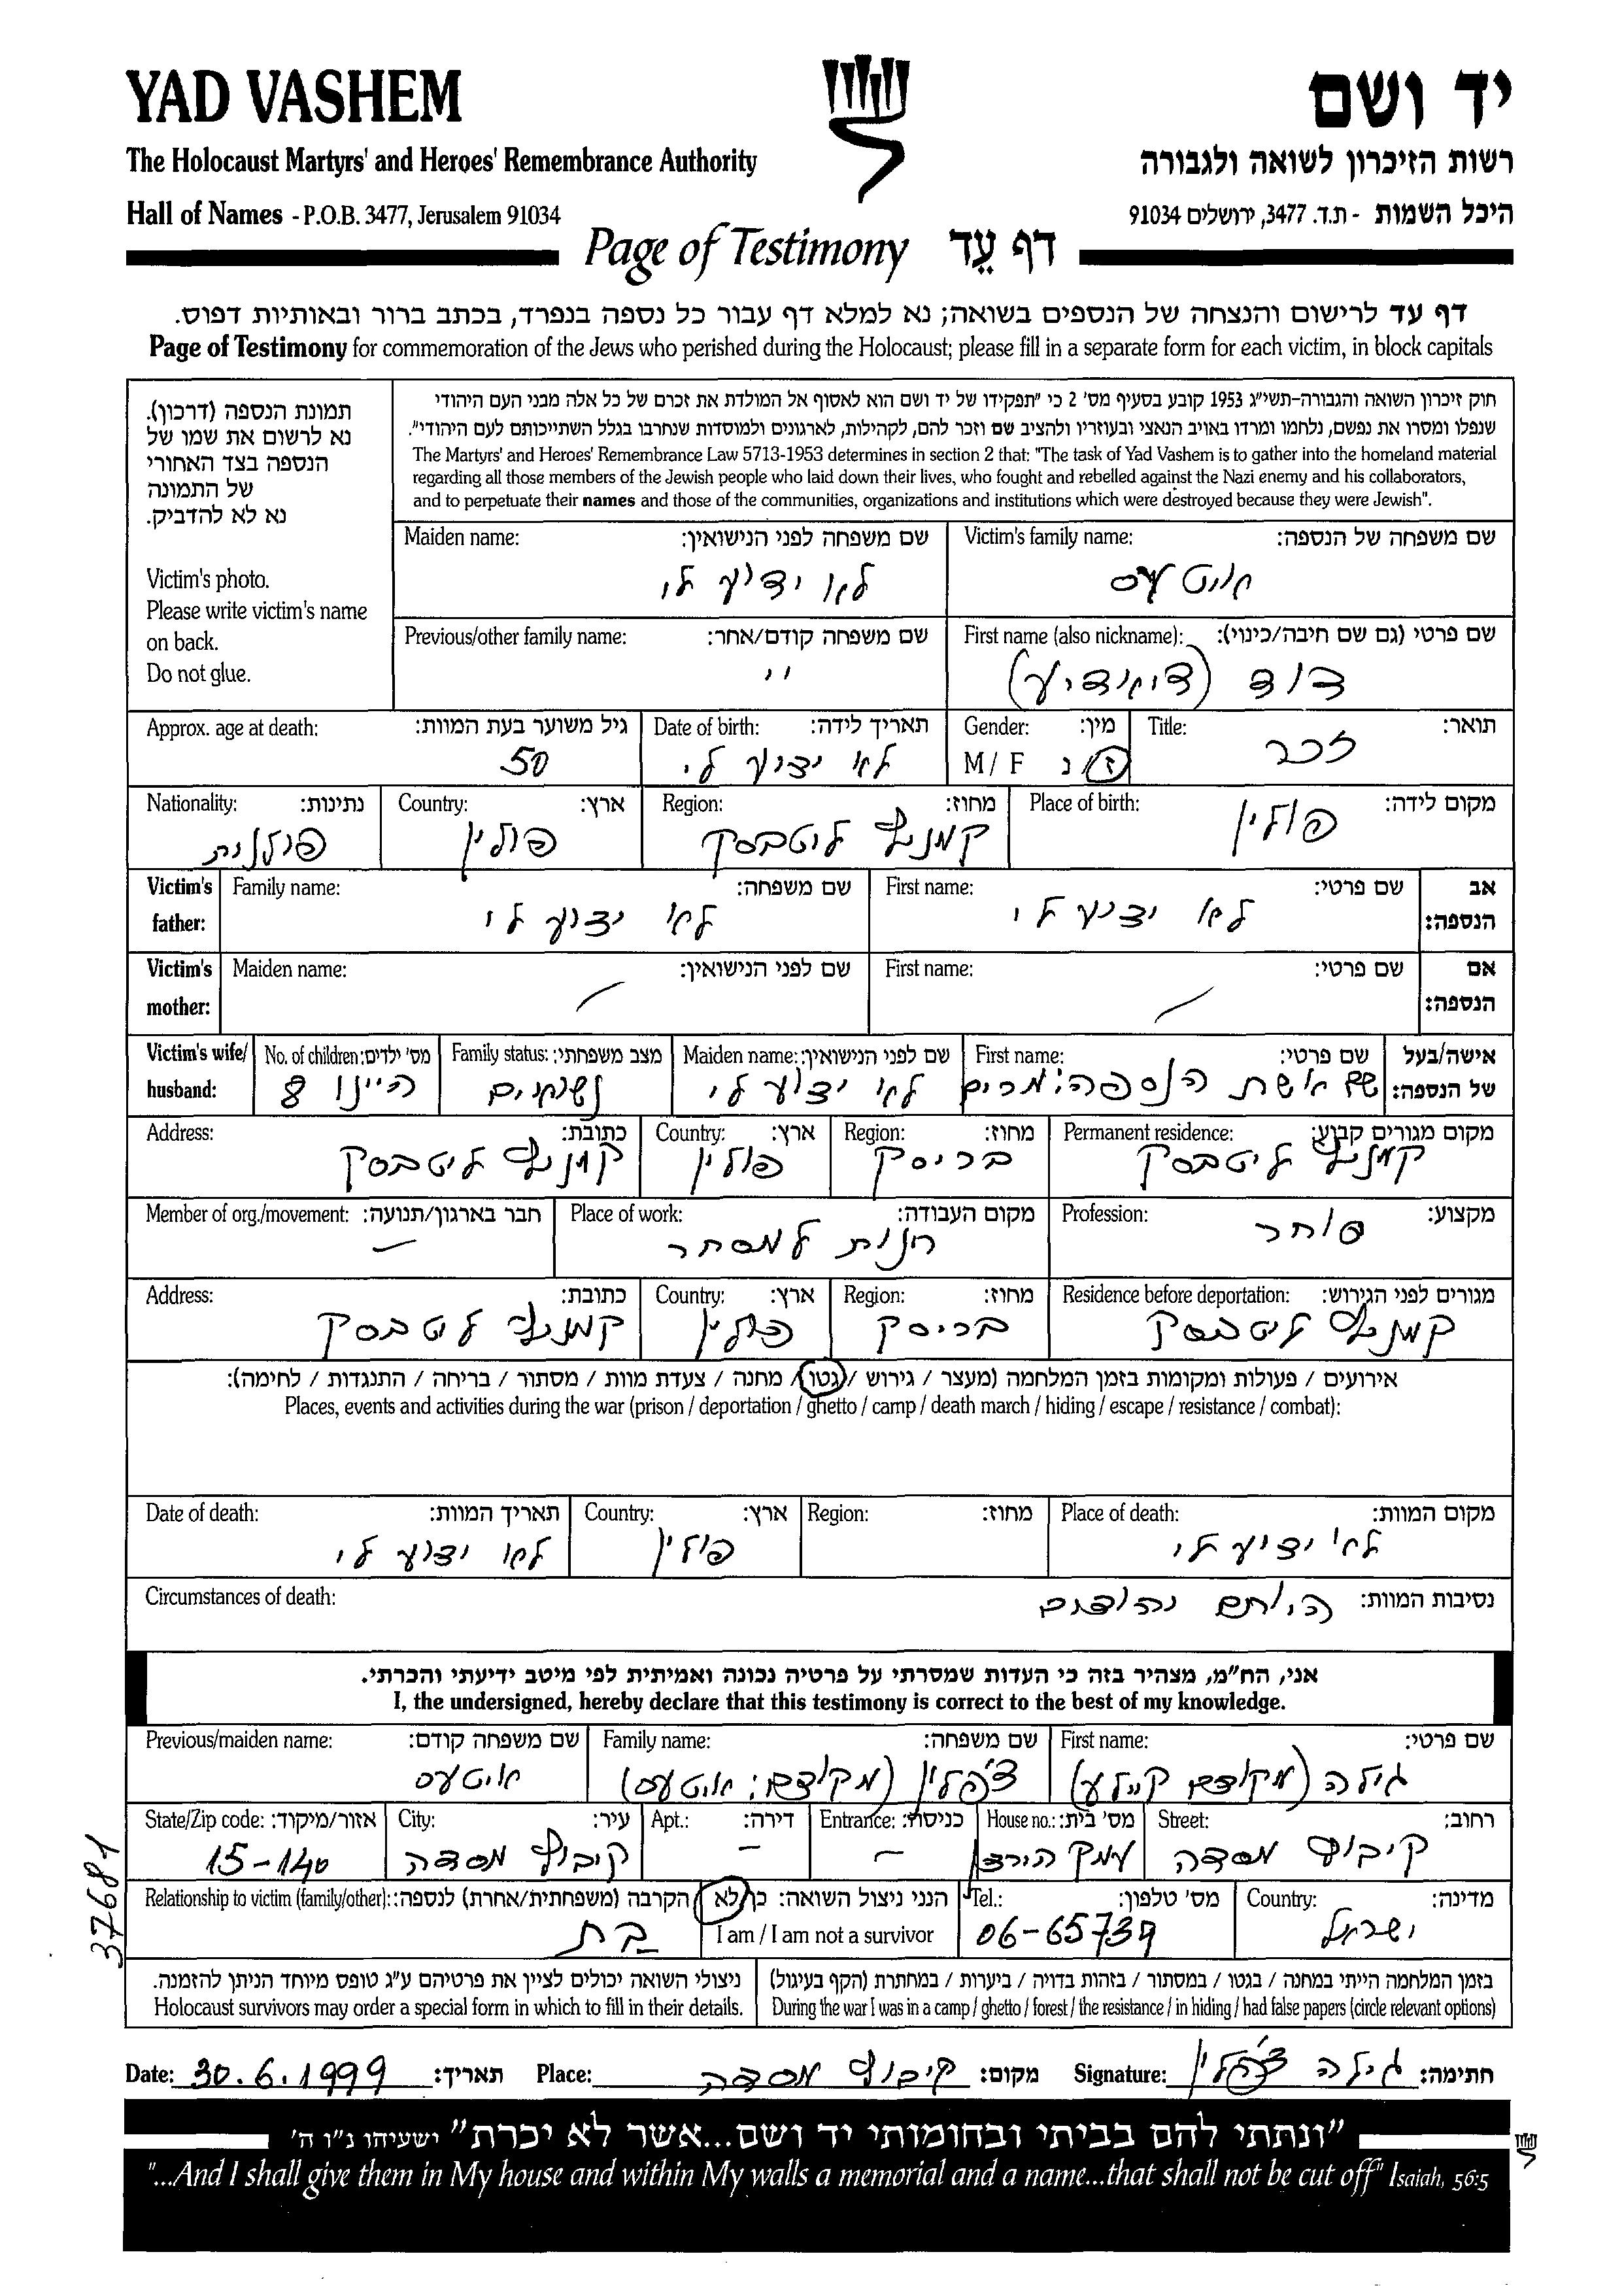 YAD VASHEM
יד ושם
The Holocaust Martyrs' and Heroes' Remembrance Authority
רשות הזיכרון לשואה ולגבורה
Hall of Names - P.O.B. 3477, Jerusalem 91034
היכל השמות - ת.ד. 3477, ירושלים 91034
Page of Testimony דף עֵד
דף עד לרישום והנצחה של הנספים בשואה; נא למלא דף עבור כל נספה בנפרד, בכתב ברור ובאותיות דפוס.
Page of Testimony for commemoration of the Jews who perished during the Holocaust; please fill in a separate form for each victim, in block capitals
תמונת הנספה (דרכון).
נא לרשום את שמו של
הנספה בצד האחורי
של התמונה
נא לא להדביק.
Victim's photo.
Please write victim's name
on back.
Do not glue.
חוק זיכרון השואה והגבורה-תשי"ג 1953 קובע בסעיף מס' 2 כי "תפקידו של יד ושם הוא לאסוף אל המולדת את זכרם של כל אלה מבני העם היהודי
שנפלו ומסרו את נפשם, נלחמו ומרדו באויב הנאצי ובעוזריו ולהציב שם וזכר להם, לקהילות, לארגונים ולמוסדות שנחרבו בגלל השתייכותם לעם היהודי".
The Martyrs' and Heroes' Remembrance Law 5713-1953 determines in section 2 that: "The task of Yad Vashem is to gather into the homeland material
regarding all those members of the Jewish people who laid down their lives, who fought and rebelled against the Nazi enemy and his collaborators,
and to perpetuate their names and those of the communities, organizations and institutions which were destroyed because they were Jewish".
Victim's family name: שם משפחה של הנספה:
אויטעס
Maiden name: שם משפחה לפני הנישואין:
לא ידוע לי
First name (also nickname): שם פרטי (גם שם חיבה/כינוי):
דוד
Previous/other family name: שם משפחה קודם/אחר:
״
Title: תואר:
זכר
Gender: מין:
M / F ז/נ
Date of birth: תאריך לידה:
לא ידוע לי
Approx. age at death: גיל משוער בעת המוות:
50
Place of birth: מקום לידה:
פולין
Region: מחוז:
קמניץ ליטבסק
Country: ארץ:
פולין
Nationality: נתינות:
פולנית
Victim's father: אב הנספה:
First name: שם פרטי:
לא ידוע לי
Family name: שם משפחה:
לא ידוע לי
Victim's mother: אם הנספה:
First name: שם פרטי:
Maiden name: שם לפני הנישואין:
Victim's wife/ husband: אישה/בעל של הנספה:
First name: שם פרטי:
שם אישת הנספה: מרים
Maiden name: שם לפני הנישואין:
לא ידוע לי
Family status: מצב משפחתי:
נשואים
No. of children: מס' ילדים:
היינו 8
Permanent residence: מקום מגורים קבוע:
קמניץ ליטבסק
Region: מחוז:
בריסק
Country: ארץ:
פולין
Address: כתובת:
קמניץ ליטבסק
Profession: מקצוע:
סוחר
Place of work: מקום העבודה:
חנות למסחר
Member of org./movement: חבר בארגון/תנועה:
—
Residence before deportation: מגורים לפני הגירוש:
קמניץ ליטבסק
Region: מחוז:
בריסק
Country: ארץ:
פולין
Address: כתובת:
קמניץ ליטבסק
אירועים / פעולות ומקומות בזמן המלחמה (מעצר / גירוש / גטו / מחנה / צעדת מוות / מסתור / בריחה / התנגדות / לחימה):
Places, events and activities during the war (prison / deportation / ghetto / camp / death march / hiding / escape / resistance / combat):
Place of death: מקום המוות:
לא ידוע לי
Region: מחוז:
Country: ארץ:
פולין
Date of death: תאריך המוות:
לא ידוע לי
Circumstances of death: נסיבות המוות:
היותם יהודים
אני, הח"מ, מצהיר בזה כי העדות שמסרתי על פרטיה נכונה ואמיתית לפי מיטב ידיעתי והכרתי.
I, the undersigned, hereby declare that this testimony is correct to the best of my knowledge.
First name: שם פרטי:
גילה (מקודם קיילע)
Family name: שם משפחה:
צ'פלין (מקודם: אויטעס)
Previous/maiden name: שם משפחה קודם:
אויטעס
Street: רחוב:
קיבוץ מסדה
House no.: מס' בית:
עמק הירדן
Entrance: כניסה:
—
Apt.: דירה:
—
City: עיר:
קיבוץ מסדה
State/Zip code: אזור/מיקוד:
15-140
Country: מדינה:
ישראל
Tel.: מס' טלפון:
06-65739
הנני ניצול השואה: כן/לא
I am / I am not a survivor
Relationship to victim (family/other): הקרבה (משפחתית/אחרת) לנספה:
בת
37681
בזמן המלחמה הייתי במחנה / בגטו / במסתור / בזהות בדויה / ביערות / במחתרת (הקף בעיגול)
During the war I was in a camp / ghetto / forest / the resistance / in hiding / had false papers (circle relevant options)
ניצולי השואה יכולים לציין את פרטיהם ע"ג טופס מיוחד הניתן להזמנה.
Holocaust survivors may order a special form in which to fill in their details.
Date: 30.6.1999 תאריך: Place: קיבוץ מסדה מקום: Signature: גילה צ'פלין חתימה:
"ונתתי להם בביתי ובחומותי יד ושם...אשר לא יכרת" ישעיהו נ"ו ה'
"...And I shall give them in My house and within My walls a memorial and a name...that shall not be cut off" Isaiah, 56:5